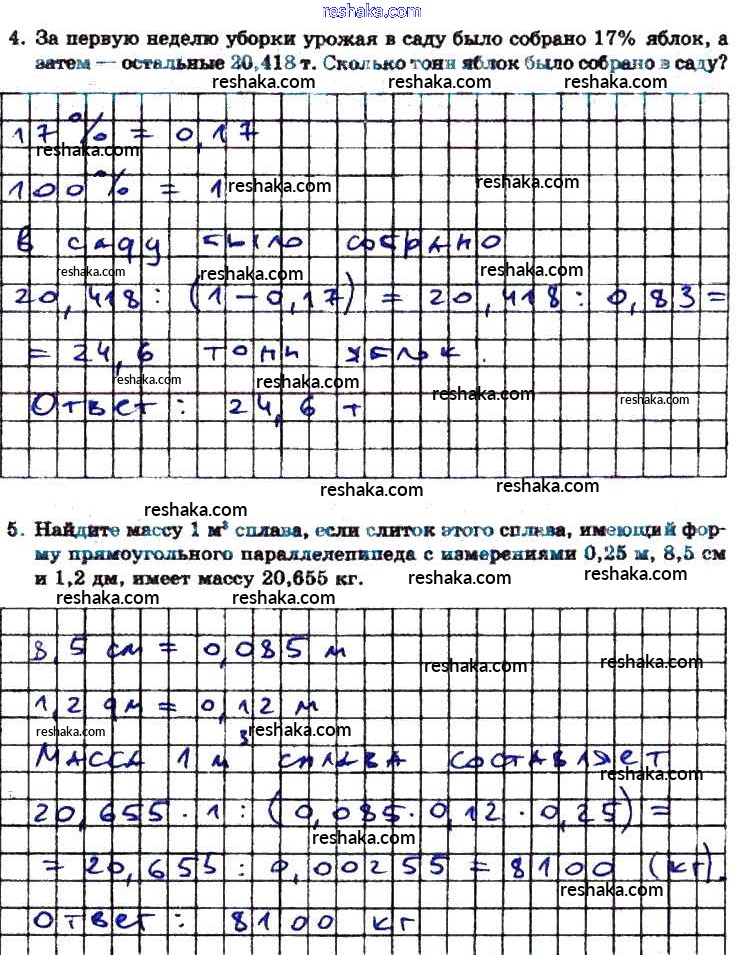 reshaka.com
4. За первую неделю уборки урожая в саду было собрано 17% яблок, а
затем — остальные 20,418 т. Сколько тонн яблок было собрано в саду?
reshaka.com reshaka.com reshaka.com
17% = 0,17
reshaka.com
100% = 1
reshaka.com reshaka.com
В саду было собрано
reshaka.com reshaka.com reshaka.com
20,418 : (1 - 0,17) = 20,418 : 0,83 =
= 24,6 тонн яблок.
reshaka.com reshaka.com reshaka.com reshaka.com
Ответ: 24,6 т
reshaka.com reshaka.com reshaka.com
5. Найдите массу 1 м³ сплава, если слиток этого сплава, имеющий фор-
му прямоугольного параллелепипеда с измерениями 0,25 м, 8,5 см
и 1,2 дм, имеет массу 20,655 кг.
reshaka.com
reshaka.com reshaka.com
8,5 см = 0,085 м
reshaka.com reshaka.com
1,2 дм = 0,12 м
reshaka.com reshaka.com
Масса 1 м³ сплава составляет
reshaka.com
20,655 · 1 : (0,085 · 0,12 · 0,25) =
reshaka.com
= 20,655 : 0,00255 = 8100 (кг).
reshaka.com
Ответ: 8100 кг